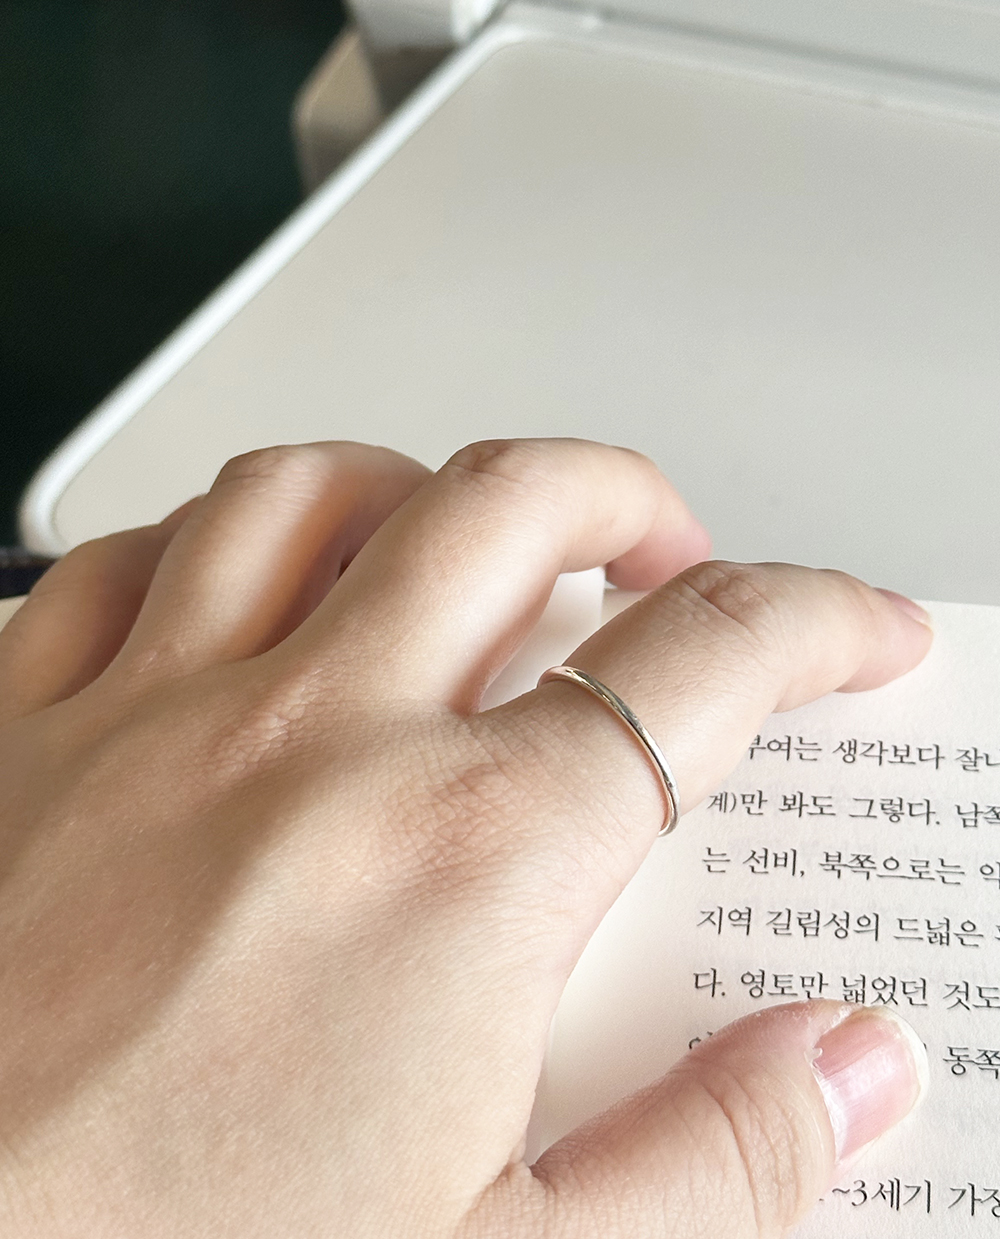 부여는 생각보다 잘
계)만 봐도 그렇다. 남쪽
는 선비, 북쪽으로는
지역 길림성의 드넓은
다. 영토만 넓었던 것도
동쪽
~3세기 가장